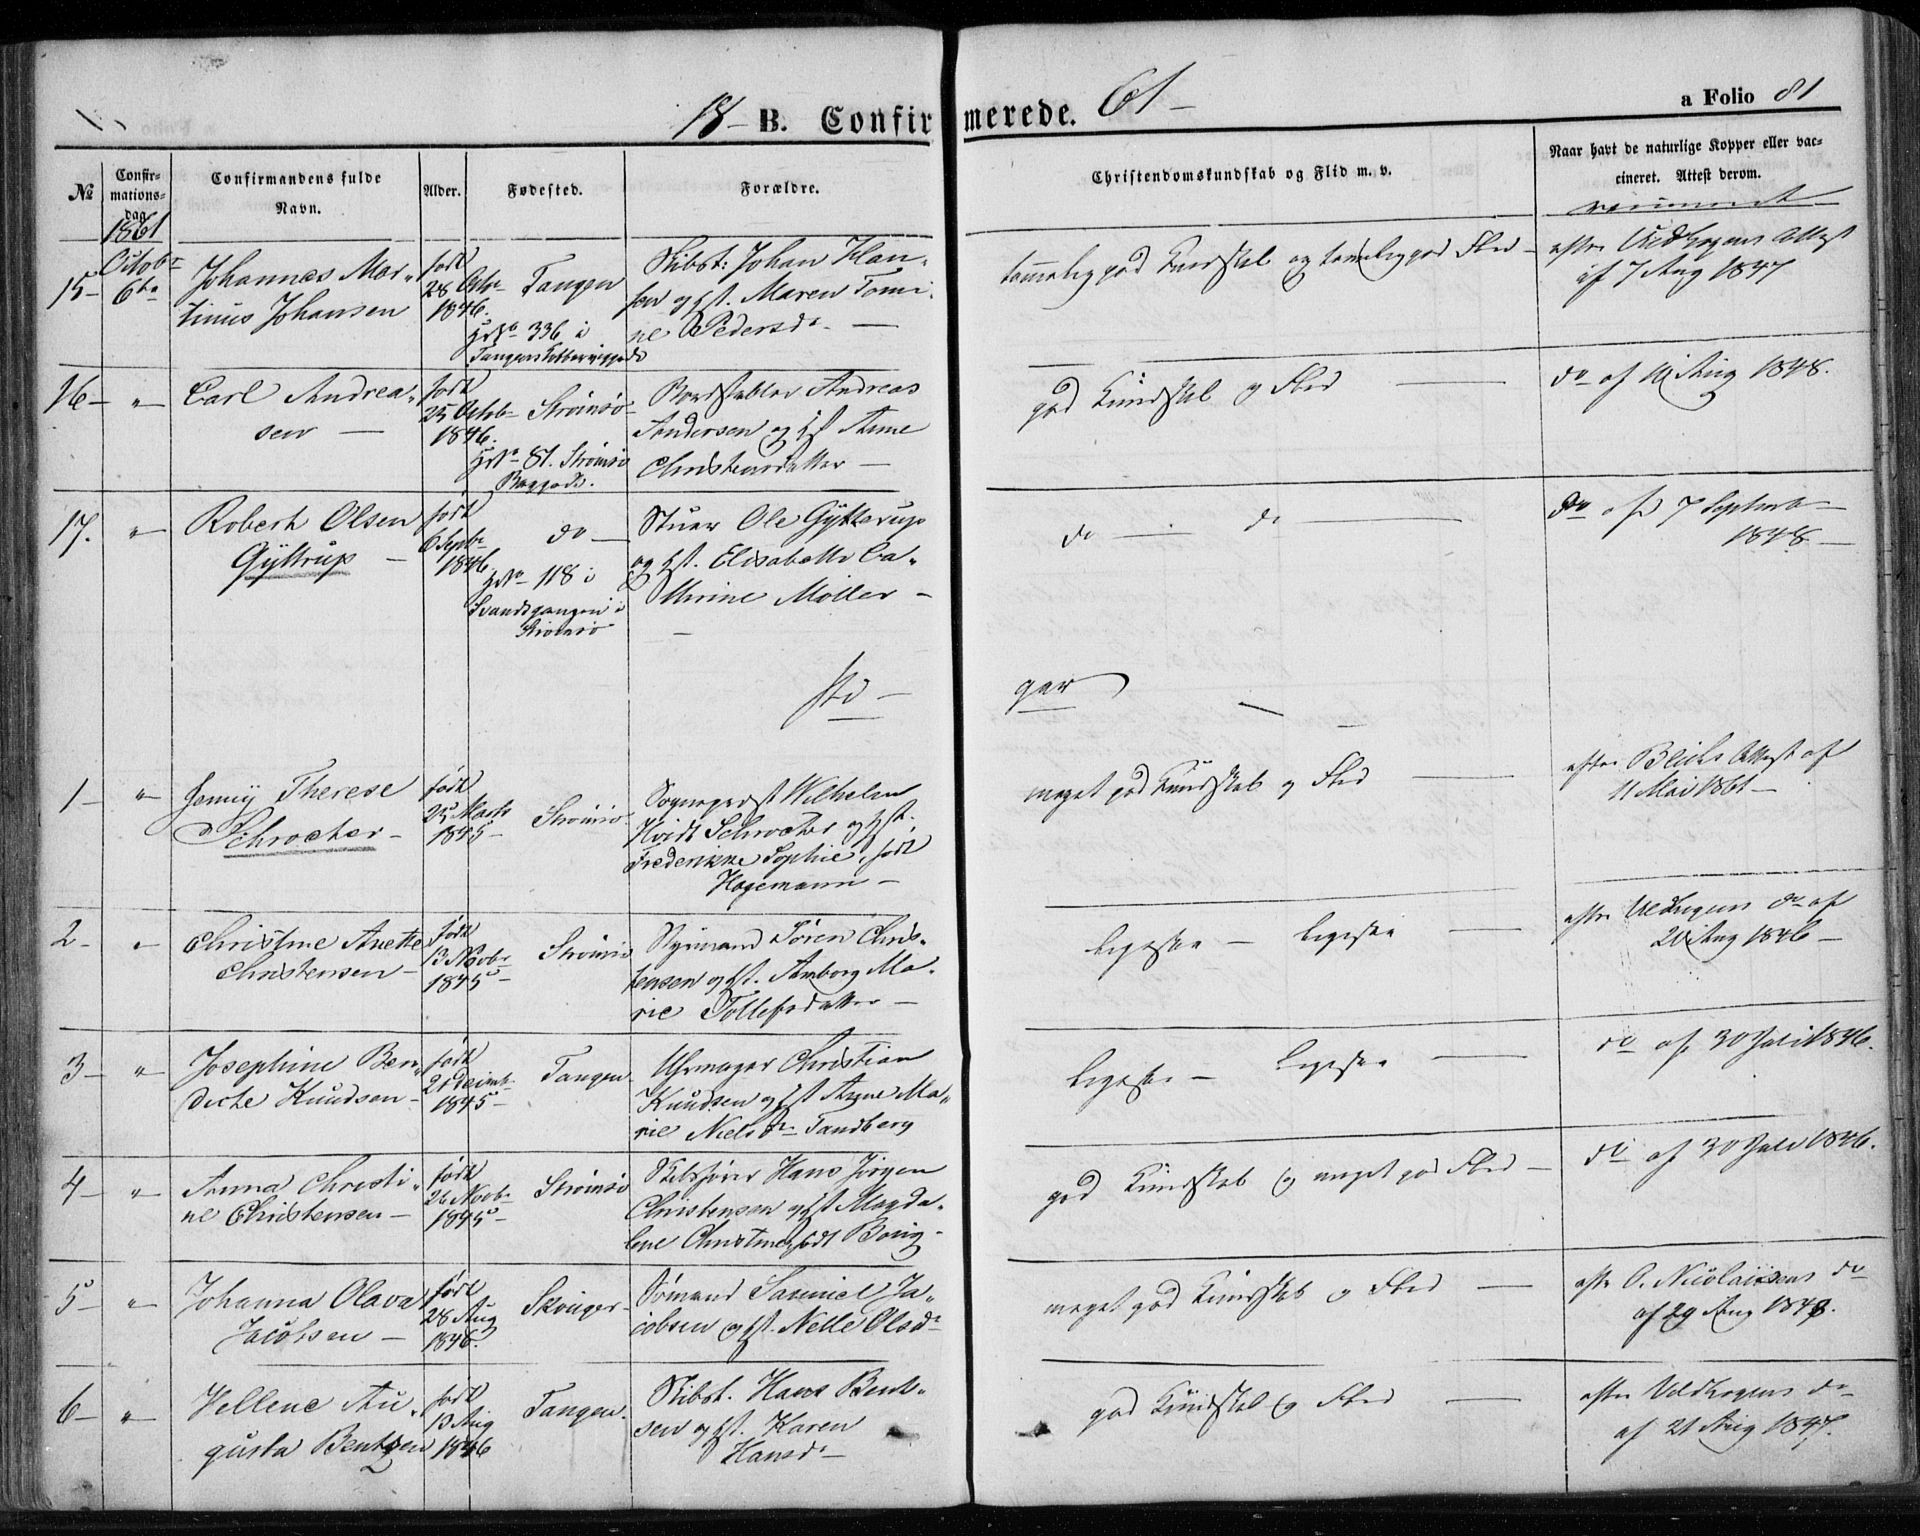 18 – B. Confirmerede. 61 –
a Folio 81
№
Confirmationsdag
Confirmandens fulde Navn.
Alder.
Fødested.
Forældre.
Christendomskundskab og Flid m. v.
Naar havt de naturlige Kopper eller vaccineret. Attest derom.
1861
Octobr
6te
15 –
Johannes Martinus Johansen
født 28 Octbr 1846.
Tangen
Hs No 336 i Tangens
Skibst: Johan Hansen og Hst. Maren Tomine Pedersdr –
temmelig god Kundskab og temelig god Flid –
vaccineret
efter Uldhogens Attest af 7 Aug 1847
16 – "
Carl Andreasen –
født 25 Octob 1846.
Strömsö
Hs No 81. Strömsö Baggade.
Bordstabler Andreas Andersen og Hst Anne Christensdatter –
god Kundskab og Flid –
do af 10 Aug 1848.
17. "
Robert Olsen Gyttrup –
født 6 Septbr 1846.
do –
Hs No 118 i Strandgangen i Strömsö
Stuer Ole Gytterup og Hst. Elisabeth Cathrine Møller –
do – do –
do af 7 Septemb 1848 –
Piger
1 – "
Jenny Therese Schroeter –
født 25 Marts 1845 –
Strömsö
Sognepræst Wilhelm Hvidt Schroeter og Hst. Frederikke Sophie, født Hagemann –
meget god Kundskab og Flid –
efter Blichs Attest af 11 Mai 1861 –
2 – "
Christine Anette Christensen –
født 13 Novbr 1845 –
Strömsö
Styrmand Søren Christensen og Hst. Anborg Marie Tollefsdatter –
ligeske – ligeske –
efter Uldhogens do af 20 Aug 1846 –
3 – "
Josephine Bendicte Knudsen –
født 21 Decemb 1845 –
Tangen
Uhrmager Christian Knudsen og Hst Anne Marie Nielsdr Tandberg
ligeske – ligeske –
do af 30 Juli 1846.
4 – "
Anna Christine Christensen –
født 26 Novbr 1845 –
Strömsö
Skibsfører Hans Jörgen Christensen og Hst Magdalene Christine, født Borig –
god Kundskab og meget god Flid –
do af 30 Juli 1846.
5 – "
Johanna Olava Jacobsen –
født 28 Aug 1846.
Skouger –
Sømand Samuel Jacobsen og Hst. Nelle Olsdr
meget god Kundskab og Flid –
efter O. Nicolaisens do af 29 Aug 1848.
6 – "
Hellene Augusta Bentzen
født 13 Aug 1846
Tangen.
Skibst. Hans Bentsen og Hst. Karen Hansdr –
god Kundskab og Flid –
efter Uldhogens do af 21 Aug 1847.